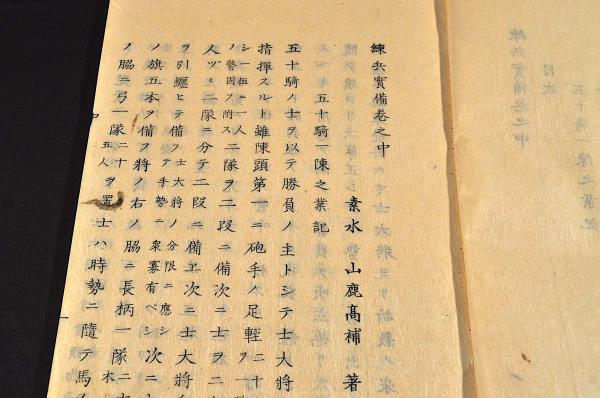 練兵實備巻之中
素水山鹿髙補著
五十騎一陳之業記
五十騎ノ士ヲ以テ勝負ノ主トシテ士大將
指揮スルト雖陳頭第一ニ砲手ノ足輕二十
シ一伍ニ一人
ノ警固ヲ附ス二隊ヲ二段ニ備次ニ士ヲ二
人ヅヽ二隊ニ分テ二段ニ備ヱ次ニ士大將
ヲ引纏ヒテ備フ士大將ノ分限ニ應シ
テ手勢ニ衆寡有ベシ次ニ
ノ旗五本ヲ備フ將ノ右ノ脇ニ長柄一隊二十
本
ノ脇ニ弓一隊二十
五人ヲ置士ハ時勢ニ隨テ馬
練兵實備巻之中
目次
五十騎一陳之業記